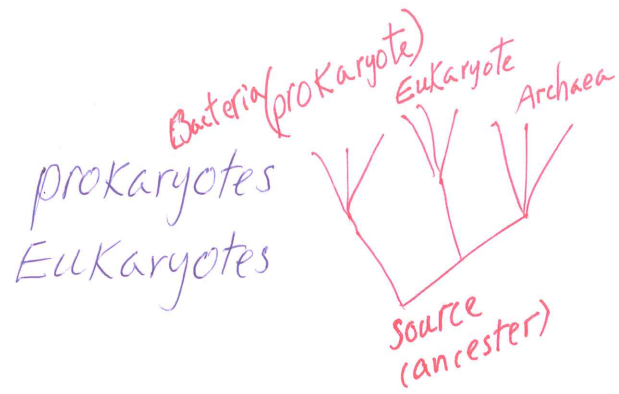 Bacteria(prokaryote)
Eukaryote
Archaea
prokaryotes
Eukaryotes
source
(ancester)